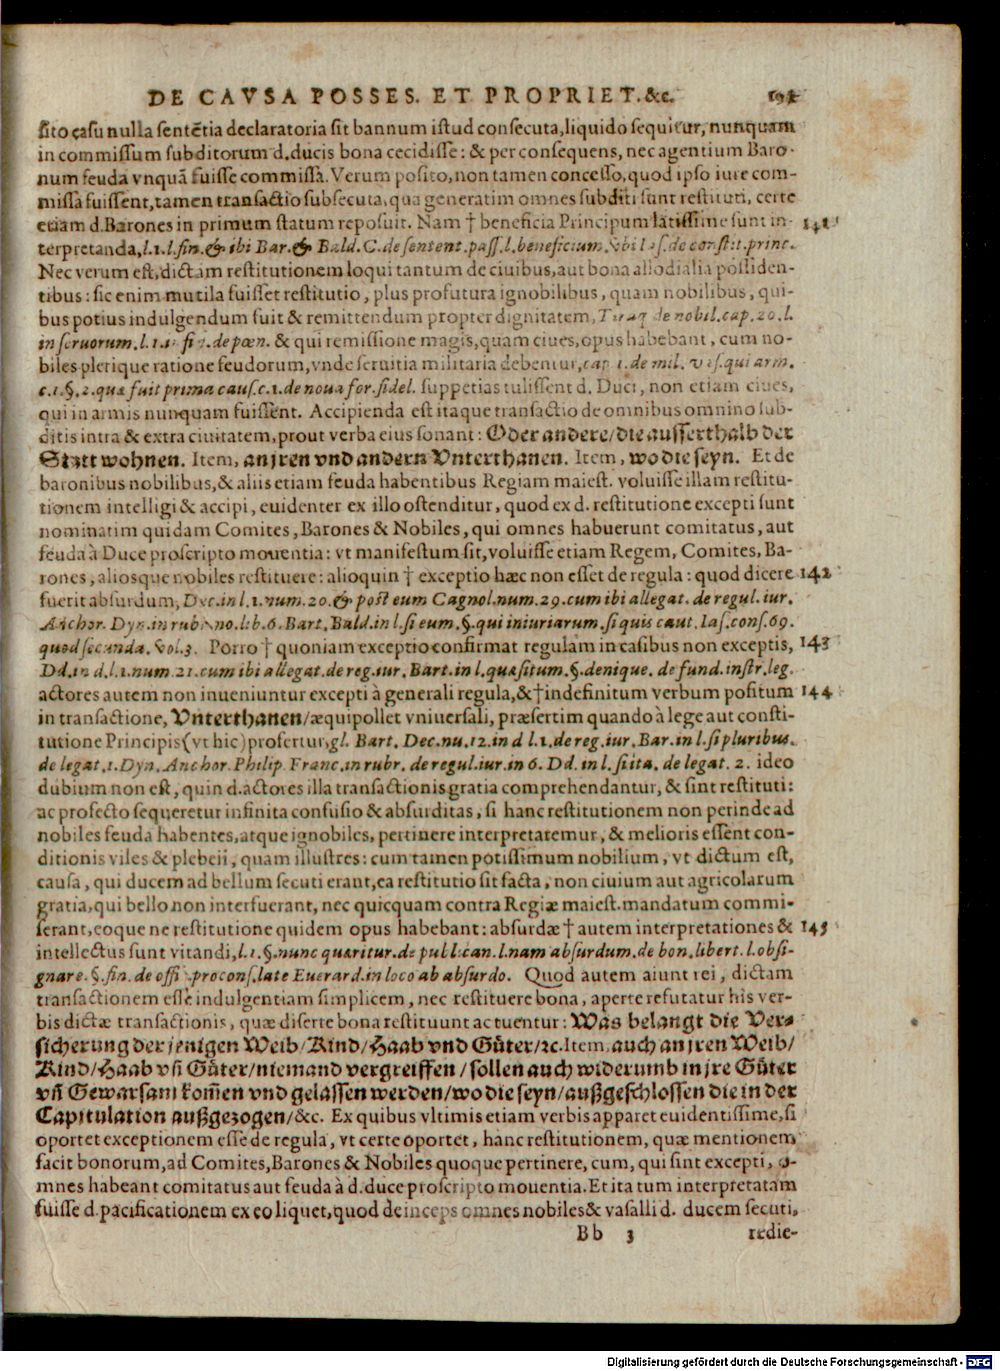 DE CAVSA POSSES. ET PROPRIET. &c.
sito casu nulla sentẽtia declaratoria sit bannum istud consecuta, liquido sequitur, nunquam
in commissum subditorum d. ducis bona cecidisse: & per consequens, nec agentium Baro-
num feuda vnquã fuisse commissa. Verum posito, non tamen concesso, quod ipso iure com-
missa fuissent, tamen transactio subsecuta, qua generatim omnes subditi sunt restituti, certe
etiam d. Barones in primum statum reposuit. Nam † beneficia Principum latissime sunt in- 141
terpretanda, l. 1. l. fin. & ibi Bar. & Bald. C. de sentent. pass. l. beneficium. vbi Ias. de constit. princ.
Nec verum est, dictam restitutionem loqui tantum de ciuibus, aut bona allodialia possiden-
tibus: sic enim mutila fuisset restitutio, plus profutura ignobilibus, quam nobilibus, qui-
bus potius indulgendum fuit & remittendum propter dignitatem, Tiraq. de nobil. cap. 20. l.
in seruorum. l. 1. de pœn. & qui remissione magis, quam ciues, opus habebant, cum no-
biles plerique ratione feudorum, vnde seruitia militaria debentur, cap. 1. de mil. vas. qui arm.
c. 1. §. 2. quæ fuit prima caus. c. 1. de noua for. fidel. suppetias tulissent d. Duci, non etiam ciues,
qui in armis nunquam fuissent. Accipienda est itaque transactio de omnibus omnino sub-
ditis intra & extra ciuitatem, prout verba eius sonant: Oder andere/ die ausserthalb der
Statt wohnen. Item, an jren vnd andern Vnterthanen. Item, wo die seyn. Et de
baronibus nobilibus, & aliis etiam feuda habentibus Regiam maiest. voluisse illam restitu-
tionem intelligi & accipi, euidenter ex illo ostenditur, quod ex d. restitutione excepti sunt
nominatim quidam Comites, Barones & Nobiles, qui omnes habuerunt comitatus, aut
feuda à Duce proscripto mouentia: vt manifestum sit, voluisse etiam Regem, Comites, Ba-
rones, aliosque nobiles restituere: alioquin † exceptio hæc non esset de regula: quod dicere 142
fuerit absurdum, Dec. in l. 1. num. 20. & post eum Cagnol. num. 29. cum ibi allegat. de regul. iur.
Anchor. Dyn. in rub. no. lib. 6. Bart. Bald. in l. si eum. §. qui iniuriarum. si quis caut. Ias. cons. 69.
quod secunda. vol. 3. Porro † quoniam exceptio confirmat regulam in casibus non exceptis, 143
Dd. in d. l. 1. num. 21. cum ibi allegat. de reg. iur. Bart. in l. quæsitum. §. denique. de fund. instr. leg.
actores autem non inueniuntur excepti à generali regula, & † indefinitum verbum positum 144
in transactione, Vnterthanen/ æquipollet vniuersali, præsertim quando à lege aut consti-
tutione Principis (vt hic) profertur, gl. Bart. Dec. nu. 12. in d l. 1. de reg. iur. Bar. in l. si pluribus.
de legat. 1. Dyn. Anchor. Philip. Franc. in rubr. de regul. iur. in 6. Dd. in l. si ita. de legat. 2. ideo
dubium non est, quin d. actores illa transactionis gratia comprehendantur, & sint restituti:
ac profecto sequeretur infinita confusio & absurditas, si hanc restitutionem non perinde ad
nobiles feuda habentes, atque ignobiles, pertinere interpretatemur, & melioris essent con-
ditionis viles & plebeii, quam illustres: cum tamen potissimum nobilium, vt dictum est,
causa, qui ducem ad bellum secuti erant, ea restitutio sit facta, non ciuium aut agricolarum
gratia, qui bello non interfuerant, nec quicquam contra Regiæ maiest. mandatum commi-
serant, eoque ne restitutione quidem opus habebant: absurdæ † autem interpretationes & 145
intellectus sunt vitandi, l. 1. §. nunc quæritur. de publican. l. nam absurdum. de bon. libert. l. obsi-
gnare. §. fin. de offi. procons. late Euerard. in loco ab absurdo. Quod autem aiunt rei, dictam
transactionem esse indulgentiam simplicem, nec restituere bona, aperte refutatur his ver-
bis dictæ transactionis, quæ diserte bona restituunt ac tuentur: Was belangt die Ver-
sicherung der jenigen Weib/ Kind/ Haab vnd Güter/ ꝛc. Item, auch an jren Weib/
Kind/ Haab vñ Güter/ niemand vergreiffen/ sollen auch widerumb in jre Güter
vñ Gewarsam kom̃en vnd gelassen werden/ wo die seyn/ außgeschlossen die in der
Capitulation außgezogen/ &c. Ex quibus vltimis etiam verbis apparet euidentissime, si
oportet exceptionem esse de regula, vt certe oportet, hanc restitutionem, quæ mentionem
facit bonorum, ad Comites, Barones & Nobiles quoque pertinere, cum, qui sint excepti, o-
mnes habeant comitatus aut feuda à d. duce proscripto mouentia. Et ita tum interpretatam
fuisse d. pacificationem ex eo liquet, quod deinceps omnes nobiles & vasalli d. ducem secuti,
Bb 3 redie-
Digitalisierung gefördert durch die Deutsche Forschungsgemeinschaft - DFG